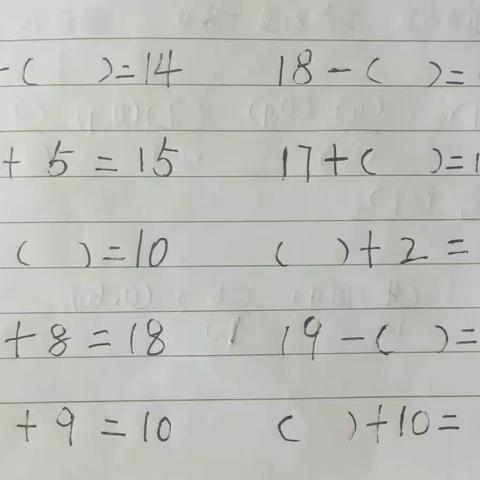 - ( ) = 14 18 - ( ) =
+ 5 = 15 17 + ( ) = 1
( ) = 10 ( ) + 2 =
+ 8 = 18 19 - ( ) =
+ 9 = 10 ( ) + 10 =